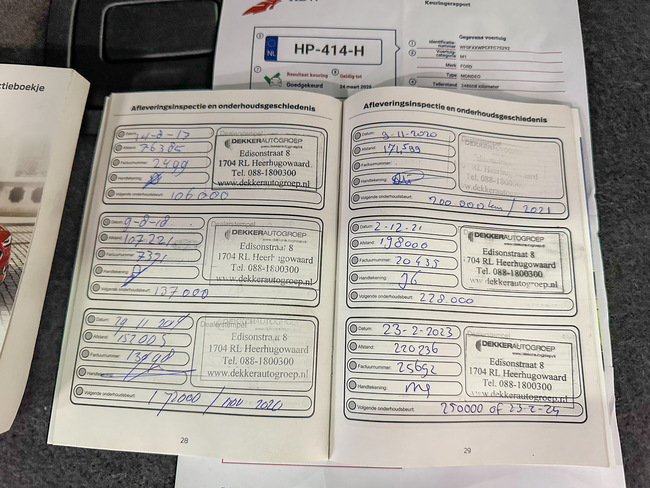 ctieboekje
Keuringsrapport
NL
HP-414-H
Resultaat keuring
Geldig tot
Goedgekeurd
24 maart 2026
Gegevens voertuig
Identificatie-
nummer
Voertuig-
categorie
M1
Merk
FORD
Type
MONDEO
Tellerstand
kilometer
Afleveringsinspectie en onderhoudsgeschiedenis
Datum:
14-8-17
Afstand:
76385
Factuurnummer:
2499
Handtekening:
Volgende onderhoudsbeurt:
106000
Dealerstempel
DEKKERAUTOGROEP
www.dekkerautogroep.nl
Edisonstraat 8
1704 RL Heerhugowaard
Tel. 088-1800300
www.dekkerautogroep.nl
Datum:
9-8-18
Afstand:
107221
Factuurnummer:
7321
Handtekening:
Volgende onderhoudsbeurt:
137000
Dealerstempel
DEKKERAUTOGROEP
Edisonstraat 8
1704 RL Heerhugowaard
Tel. 088-1800300
www.dekkerautogroep.nl
Datum:
29 11 2019
Afstand:
152005
Factuurnummer:
Handtekening:
Volgende onderhoudsbeurt:
172000 / nov 2020
Dealerstempel
DEKKERAUTOGROEP
Edisonstraat 8
1704 RL Heerhugowaard
Tel. 088-1800300
www.dekkerautogroep.nl
28
Afleveringsinspectie en onderhoudsgeschiedenis
Datum:
9-11-2020
Afstand:
171,599
Factuurnummer:
Handtekening:
Volgende onderhoudsbeurt:
200.000km / 2021
Datum:
2-12-21
Afstand:
198000
Factuurnummer:
20435
Handtekening:
Volgende onderhoudsbeurt:
228.000
DEKKERAUTOGROEP
Edisonstraat 8
1704 RL Heerhugowaard
Tel. 088-1800300
www.dekkerautogroep.nl
Datum:
23-2-2023
Afstand:
220236
Factuurnummer:
25652
Handtekening:
Volgende onderhoudsbeurt:
250000 of 23-2-24
Dealerstempel
DEKKERAUTOGROEP
www.dekkerautogroep.nl
Edisonstraat 8
1704 RL Heerhugowaard
Tel. 088-1800300
www.dekkerautogroep.nl
29